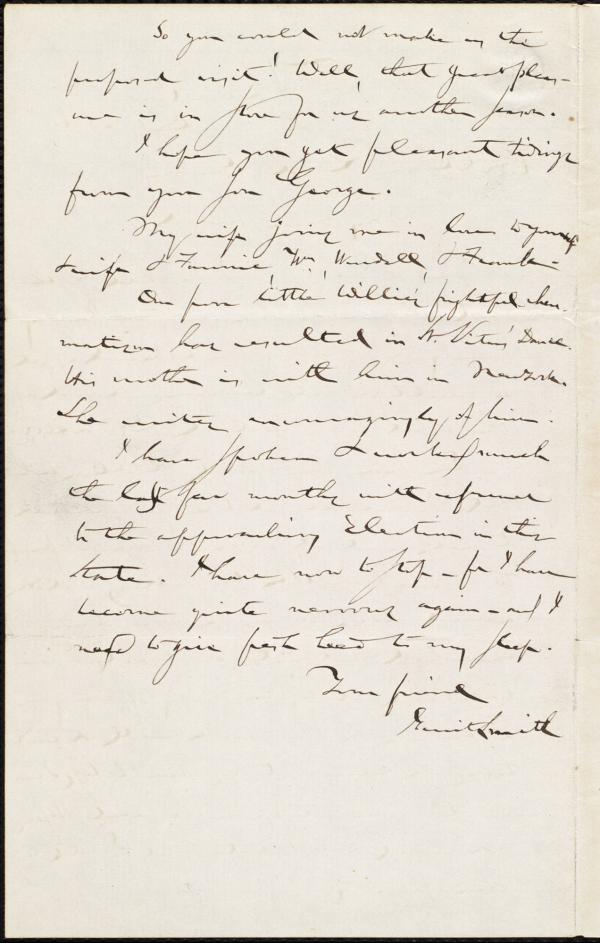 So you could not make us the
proposed visit! Well, that great pleas-
ure is in store for us another season.
I hope you get pleasant tidings
from your son George.
My wife joins me in love to yourself
& wife & Fannie, Wm. Wendell, & Frank -
Our poor little Willie's frightful rheu-
matism has resulted in St. Vitus' Dance.
His mother is with him in New York.
She writes encouragingly of him.
I have spoken & worked much
the last few months with reference
to the approaching Election in this
State. I have now to stop - for I have
become quite nervous again - and I
need to give fresh heed to my sleep.
Your friend
Gerrit Smith